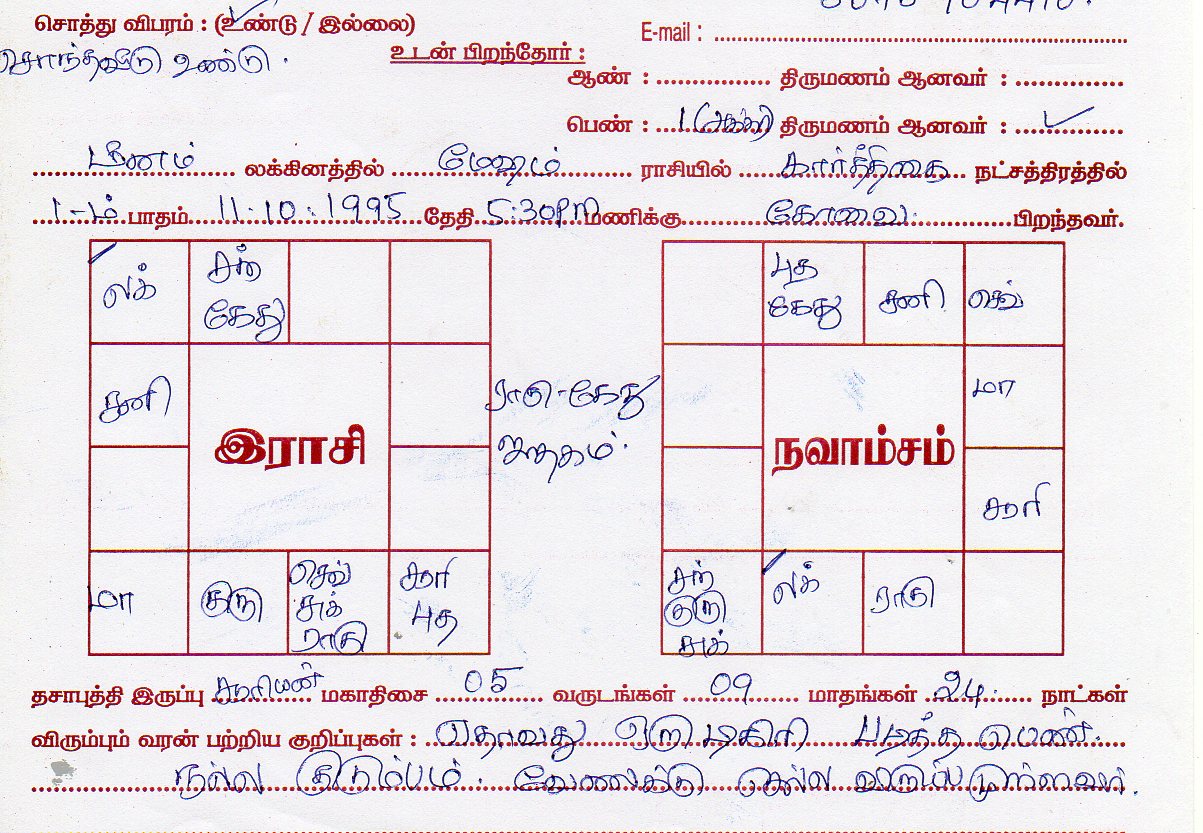 சொத்து விபரம் : (உண்டு / இல்லை)
E-mail :
சொந்தவீடு உண்டு.
உடன் பிறந்தோர் :
ஆண் : திருமணம் ஆனவர் :
பெண் : 1 (அக்கா) திருமணம் ஆனவர் : ✓
மீனம் லக்கினத்தில் மேஷம் ராசியில் கார்த்திகை நட்சத்திரத்தில்
1-ம் பாதம் 11.10.1995 தேதி 5:30PM மணிக்கு கோவை. பிறந்தவர்.
லக்
சந்
கேது
சனி
இராசி
மா
குரு
செவ்
சுக்
ராகு
சூரி
புத
ராகு-கேது
ஜாதகம்.
புத
கேது
சனி
செவ்
மா
நவாம்சம்
சூரி
சந்
குரு
சுக்
லக்
ராகு
தசாபுத்தி இருப்பு சூரியன் மகாதிசை 05 வருடங்கள் 09 மாதங்கள் 24 நாட்கள்
விரும்பும் வரன் பற்றிய குறிப்புகள் : ஏதாவது ஒரு டிகிரி படித்த பெண்.
நல்ல குடும்பம். வேலைக்கு செல்ல விருப்பமுள்ளவர்.